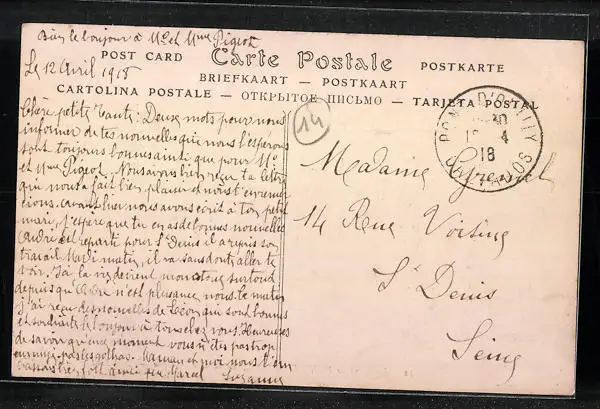 Bien le bonjour à Mr et Mme Pigeot
POST CARD Carte Postale POSTKARTE
Le 12 Avril 1918
BRIEFKAART — POSTKAART
CARTOLINA POSTALE — ОТКРЫТОЕ ПИСЬМО — TARJETA POSTAL
Chère petite tante : Deux mots pour nous
informer de tes nouvelles que nous l'espérons
sont toujours bonnes ainsi que pour Mr
et Mme Pigeot. Nous avons bien reçu ta lettre
qui nous a fait bien plaisir et nous t'en remer
cions. avant hier nous avons écrit à ton petit
mari, j'espère que tu en as de bonnes nouvelles
André est reparti pour St Denis il a repris son
travail Mardi matin, il ira sans doute aller te
voir. la vie devient monotone surtout
depuis qu' n'est plus avec nous. Ce matin
j'ai reçu des nouvelles de Léon qui sont bonnes
et souhaite le bonjour à tous chez vous. Heureuse
de savoir qu'en ce moment vous n'êtes pas trop
ennuyés par les gothas. Maman et moi nous t'em
brassons bien fort ainsi que Marcel
Suzanne
14
PONT D'OUILLY
4
18
CALVADOS
Madame
14 Rue Voisine
St Denis
Seine